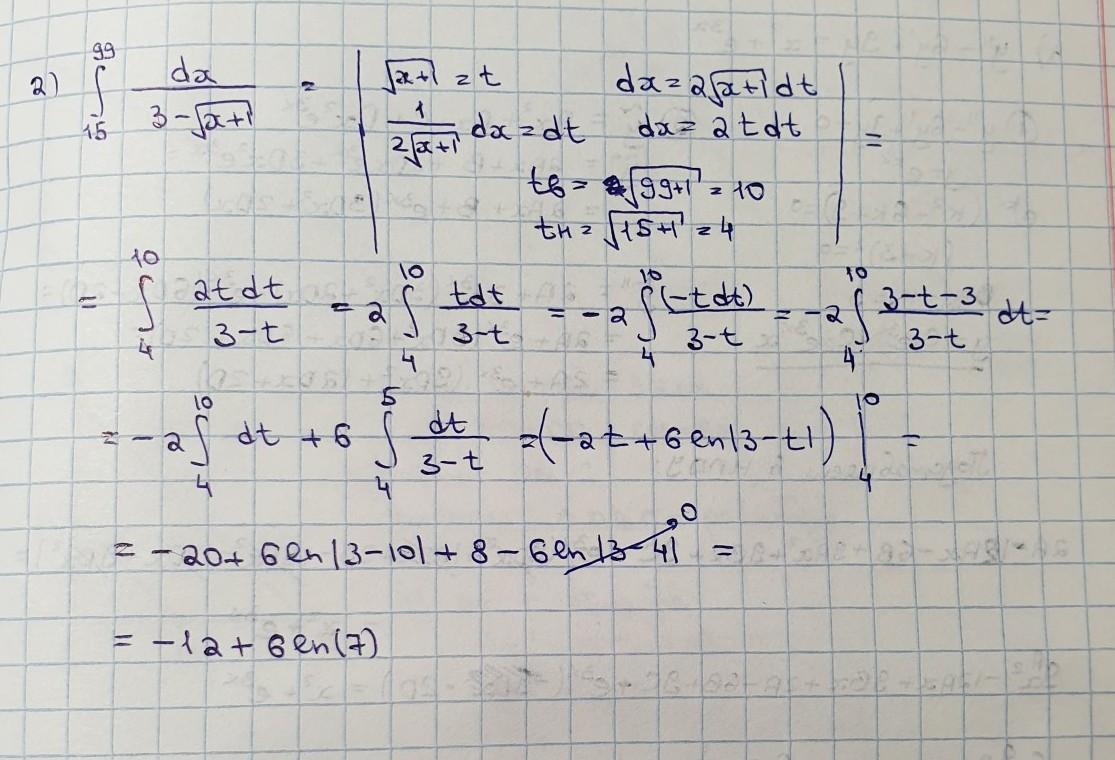 2) ∫₁₅⁹⁹ dx / (3 - √(x+1)) = | √(x+1) = t   dx = 2√(x+1) dt
1 / (2√(x+1)) dx = dt   dx = 2t dt | =
tв = √(99+1) = 10
tн = √(15+1) = 4
= ∫₄¹⁰ 2t dt / (3-t) = 2 ∫₄¹⁰ t dt / (3-t) = -2 ∫₄¹⁰ (-t dt) / (3-t) = -2 ∫₄¹⁰ (3-t-3) / (3-t) dt =
= -2 ∫₄¹⁰ dt + 6 ∫₄⁵ dt / (3-t) = (-2t + 6 ln|3-t|) |₄¹⁰ =
= -20 + 6 ln|3-10| + 8 - 6 ln|3-4| → 0 =
= -12 + 6 ln(7)